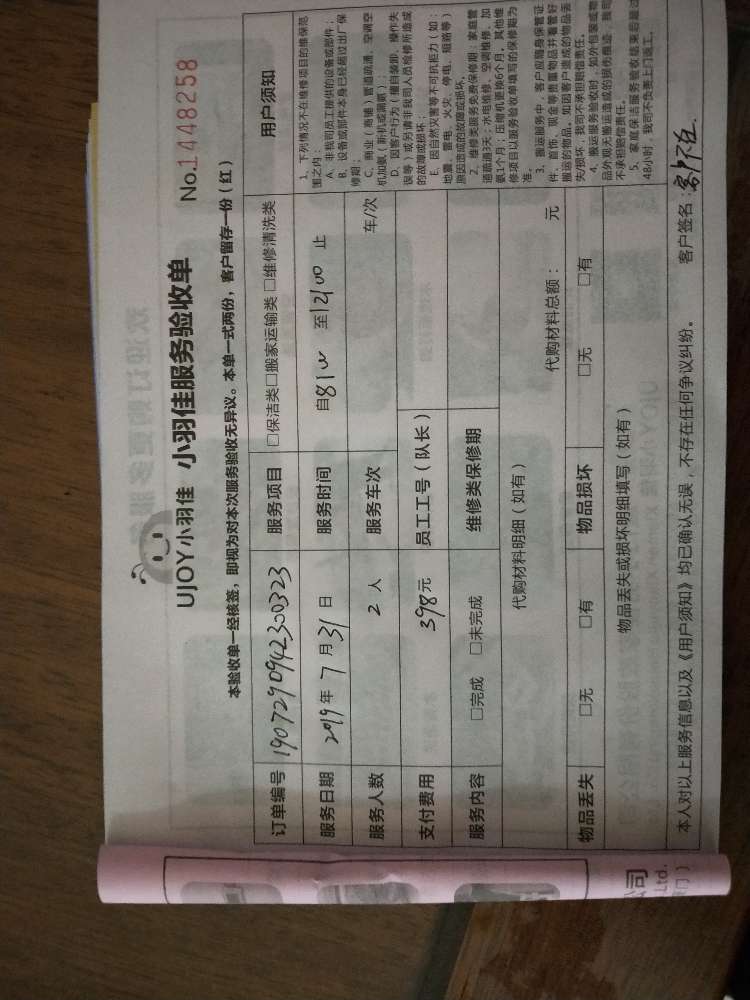 UJOY小羽佳 小羽佳服务验收单
No.1448258
本验收单一经核签，即视为对本次服务验收无异议。本单一式两份，客户留存一份（红）
订单编号 1907290942300323 服务项目 □保洁类□搬家运输类 □维修清洗类
服务日期 2019年7月31日 服务时间 自8:00 至12:00 止
服务人数 2人 服务车次 车/次
支付费用 398元 员工工号（队长）
服务内容 □完成 □未完成 维修类保修期
代购材料明细（如有） 代购材料总额： 元
物品丢失 □无 □有 物品损坏 □无 □有
物品丢失或损坏明细填写（如有）
用户须知
1、下列情况不在维修项目的维保范
围之内：
A、非我司员工提供的设备或部件；
B、设备或部件本身已经超过出厂保
修期；
C、商业（商铺）管道疏通、空调空
机加氨（新机或漏氨）；
D、因客户行为（擅自装卸、操作失
误等）或另请非我司人员检修所造成
的故障或损坏；
E、因自然灾害等不可抗拒力（如：
地震、雷电、火灾、停电、短路等）
原因造成的故障或损坏。
2、维修类服务免费保修期：家庭管
道疏通3天；水电维修、空调维修、加
氨1个月；压缩机更换6个月，其他维
修项目以服务验收单填写的保修期为
准。
3、搬运服务中，客户应随身保管证
件、首饰、现金等贵重物品并看管好
搬运的物品，如因客户造成的物品丢
失/损坏，我司不承担赔偿责任。
4、搬运服务验收时，如外包装或物
品外观无搬运造成的损伤痕迹，我司
不承担赔偿责任。
5、家庭保洁服务验收结束后超过
48小时，我司不负责上门返工。
本人对以上服务信息以及《用户须知》均已确认无误，不存在任何争议纠纷。 客户签名：客户不在
公司
Ltd.
门）